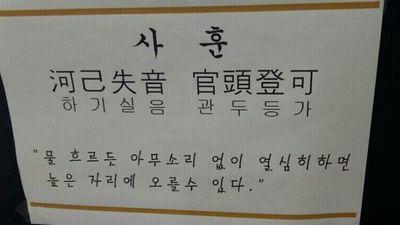 사훈
河己失音 官頭登可
하기실음 관두등가
"물 흐르듯 아무소리 없이 열심히하면
높은 자리에 오를수 있다."